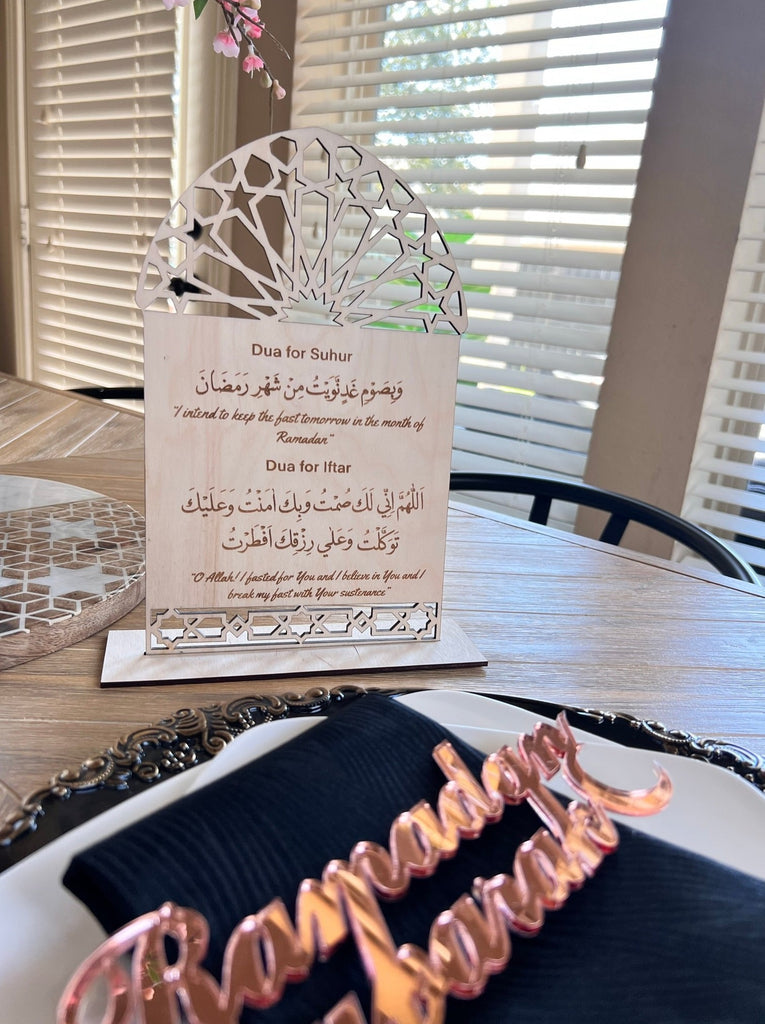 Dua for Suhur
وَبِصَوْمِ غَدٍنَّوَيْتُ مِنْ شَهْرِ رَمَضَانَ
"I intend to keep the fast tomorrow in the month of
Ramadan"
Dua for Iftar
اَللّٰهُمَّ اِنِّي لَكَ صُمْتُ وَبِكَ اٰمَنْتُ وَعَلَيْكَ
تَوَكَّلْتُ وَعَلٰي رِزْقِكَ اَفْطَرْتُ
"O Allah! I fasted for You and I believe in You and I
break my fast with Your sustenance"
Ramadan
Mubarak